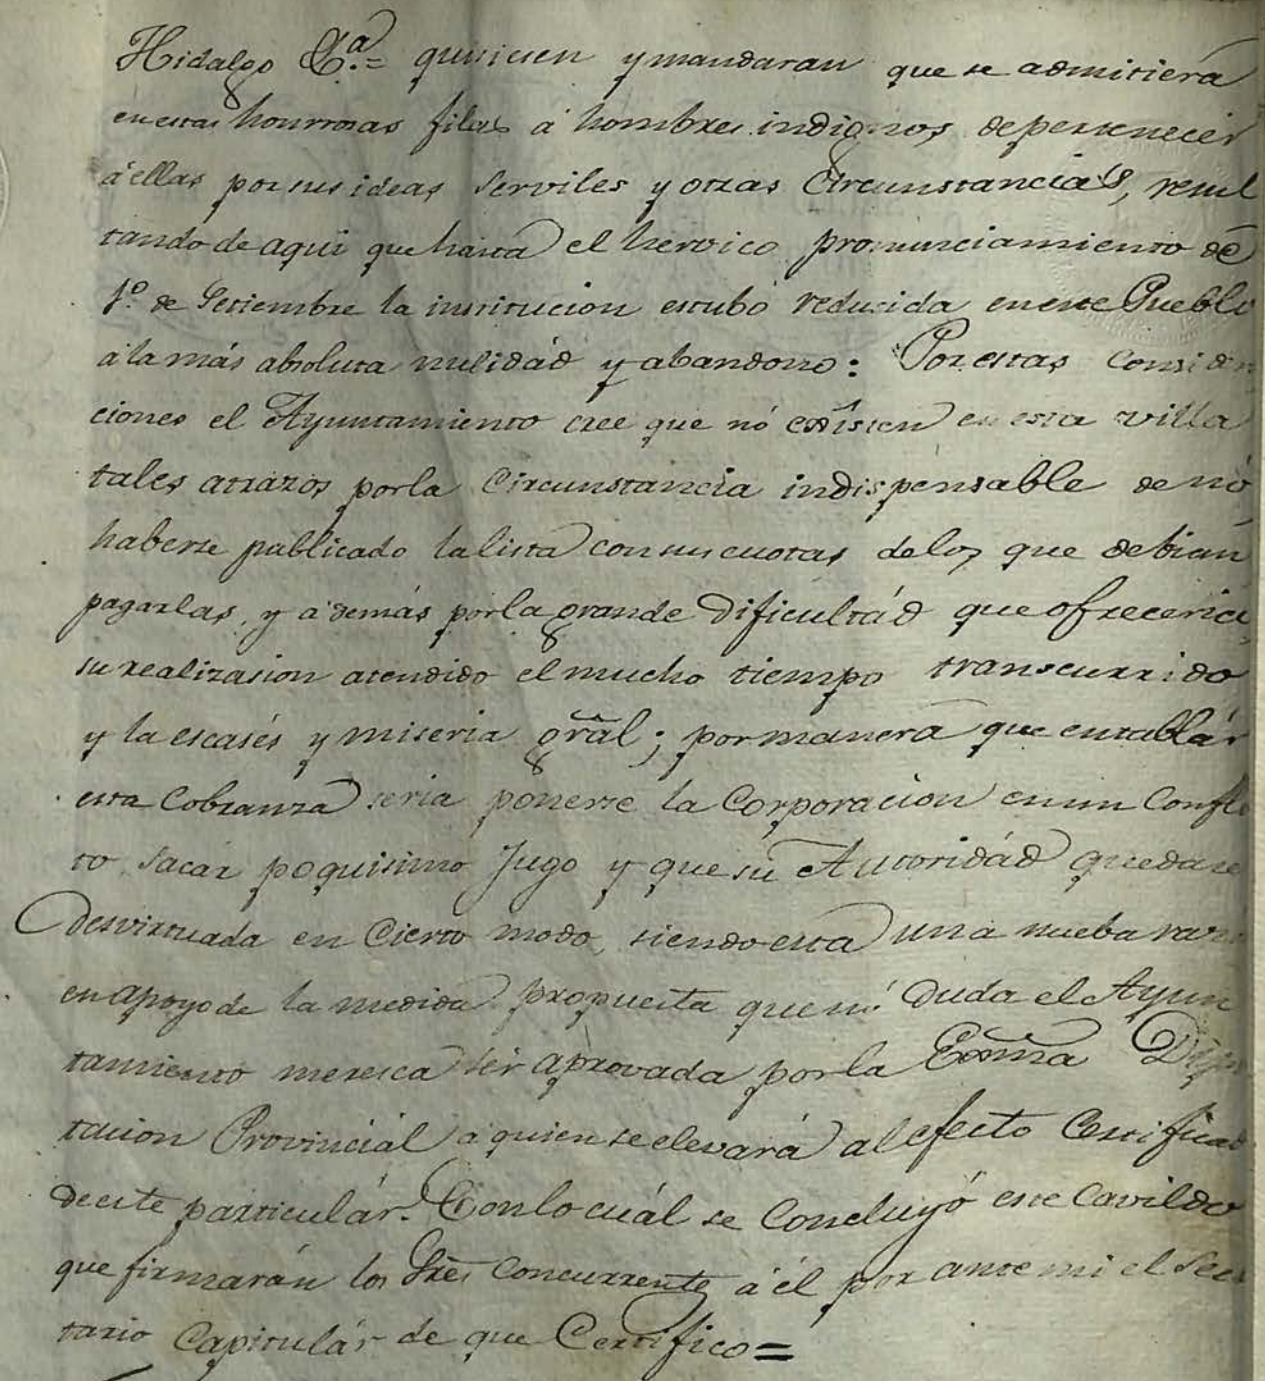 Hidalgo &.ª= quisieen y mandaran que se admitiera
en estas honrrosas filas á hombres indignos de pertenecér
á ellas por sus ideas serviles y otras Circunstancias, resul
tando de aqui que hasta el heroico pronunciamiento dé
1º. de Setiembre la institucion estubo reducida en este Pueblo
á la más absoluta nulidád y abandono: Por estas Consid
ciones el Ayuntamiento cree que nó exîsten en esta villa
tales atrazos por la Circunstancia indispensable de nó
haberse publicado la lista con sus cuotas de los que debian
pagarlas, y además por la grande Dificultád que ofreceria
su realizasion atendido el mucho tiempo transcurrido
y la escasés y miseria grãl; por manera que entablár
esta Cobranza seria ponerse la Corporacion en un Confli
to, sacar poquisimo Jugo y que su Autoridád quedase
Desvirtuada en Cierto modo, siendo esta una nueba razon
en apoyo de la medida propuesta que nó Duda el Ayun
tamiento meresca sér aprovada por la Exm̃a Dipu
tacion Provinciál á quien se elevará al efecto Certificad
de este particulár. Con lo cuál se Concluyó este Cavildo
que firmarán los Sres̃ Concurrente á él por ante mi el Secre
tario Capitulár de que Certifico=